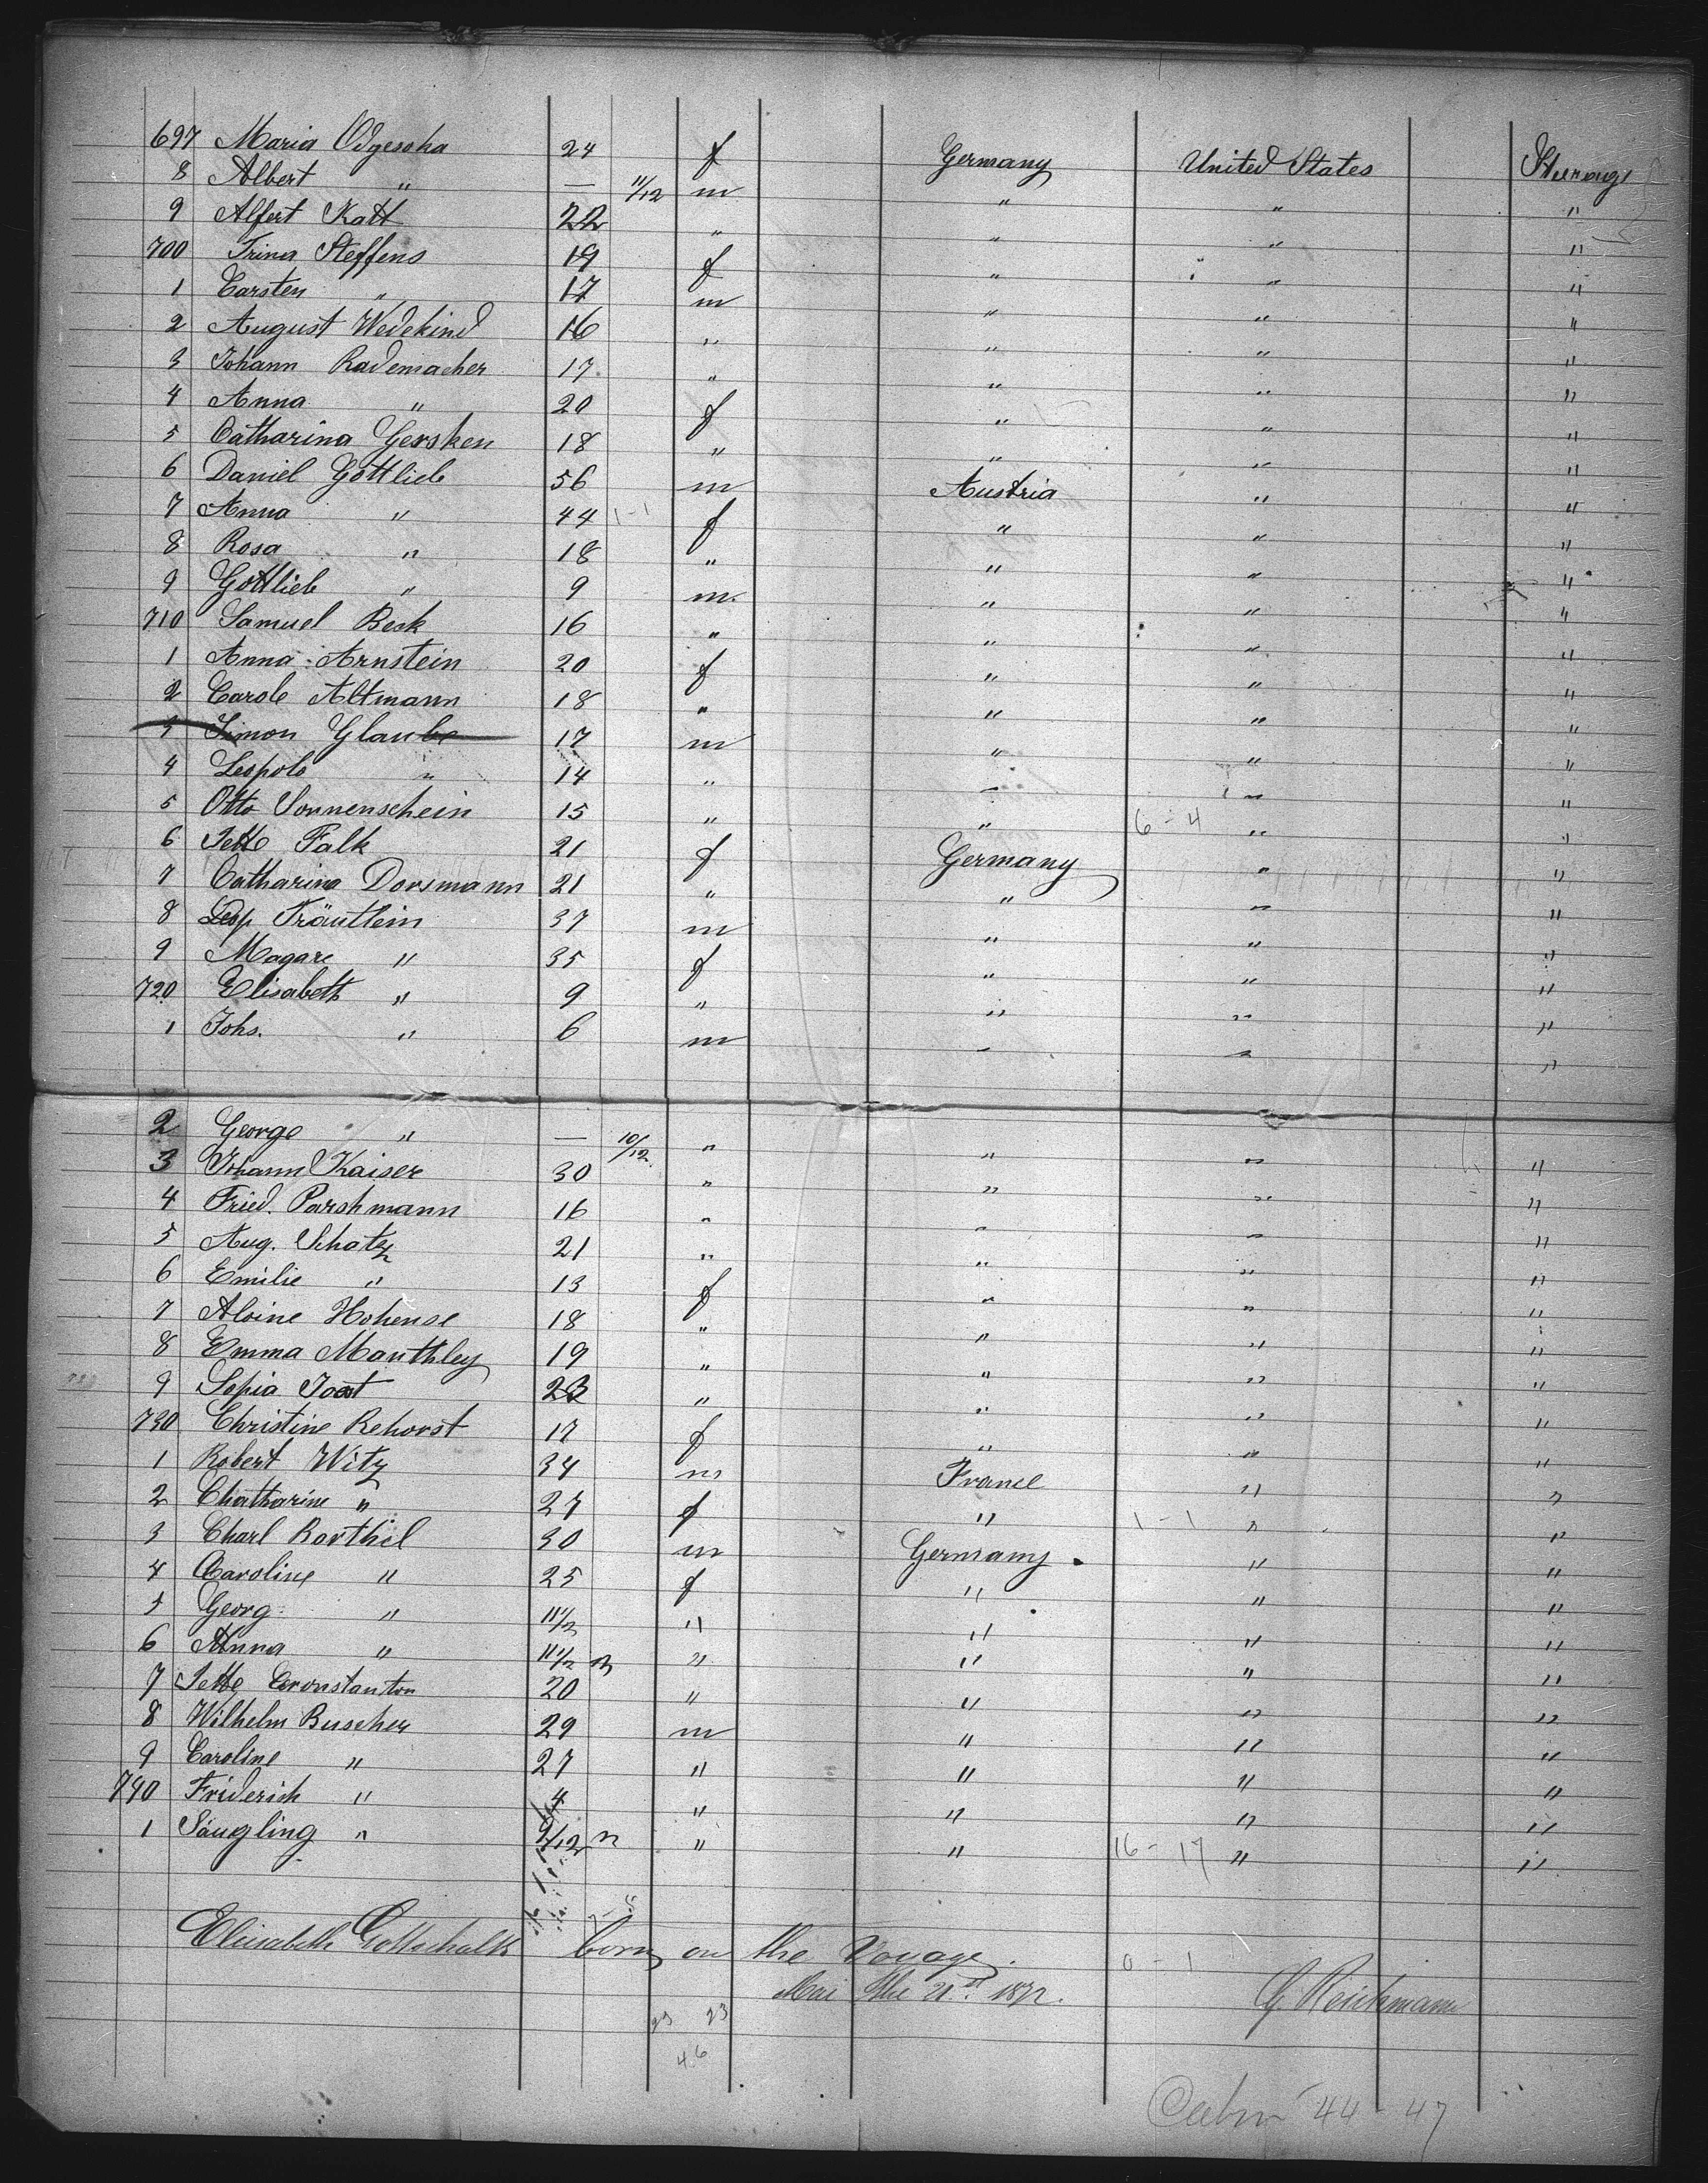 697 Maria Odgesoha 24 f Germany United States Steerage
8 Albert " — 11/12 m " " "
9 Alfert Katt 22 " " " "
700 Trina Steffens 19 f " " "
1 Carsten " 17 m " " "
2 August Wedekind 16 " " " "
3 Johann Rademacher 17 " " " "
4 Anna " 20 f " " "
5 Catharina Gersken 18 " " " "
6 Daniel Gottlieb 56 m Austria " "
7 Anna " 44 1-1 f " " "
8 Rosa " 18 " " " "
9 Gottlieb " 9 m. " " "
710 Samuel Besk 16 " " " "
1 Anna Arnstein 20 f " " "
2 Carole Altmann 18 " " " "
3 Simon Glaube 17 m " " "
4 Leopold " 14 " " " "
5 Otto Sonnenschein 15 " " 6-4 " "
6 Jette Falk 21 f Germany " "
7 Catharina Dorsmann 21 " " " "
8 Träutlein 37 m " " "
9 Magare " 35 f " " "
720 Elisabeth " 9 " " " "
1 Johs. " 6 m " " "
2 George " — 10/12 " " " "
3 Johann Kaiser 30 " " " "
4 Fried. Parshmann 16 " " " "
5 Aug. Schatz 21 " " " "
6 Emilie " 13 f " " "
7 Alvine Hohense 18 " " " "
8 Emma Manthley 19 " " " "
9 Sopia Joost 23 " " " "
730 Christine Rehorst 17 f " " "
1 Robert Witz 34 m France " "
2 Chatharine " 27 f " 1-1 " "
3 Charl Barthel 30 m Germany " "
4 Caroline " 25 f " " "
5 Georg " 11/2 " " " "
6 Anna " 11/2 " " " "
7 Jette 20 " " " "
8 Wilhelm Buscher 29 m " " "
9 Caroline " 27 " " " "
740 Friderich " 4 " " " "
1 Säugling " /12 " " 16-17 " "
Elisabeth Gottschalk born on the Voyage. 0-1
Mai the 21st. 1872. G. Reichmann
23 23
46
44-47